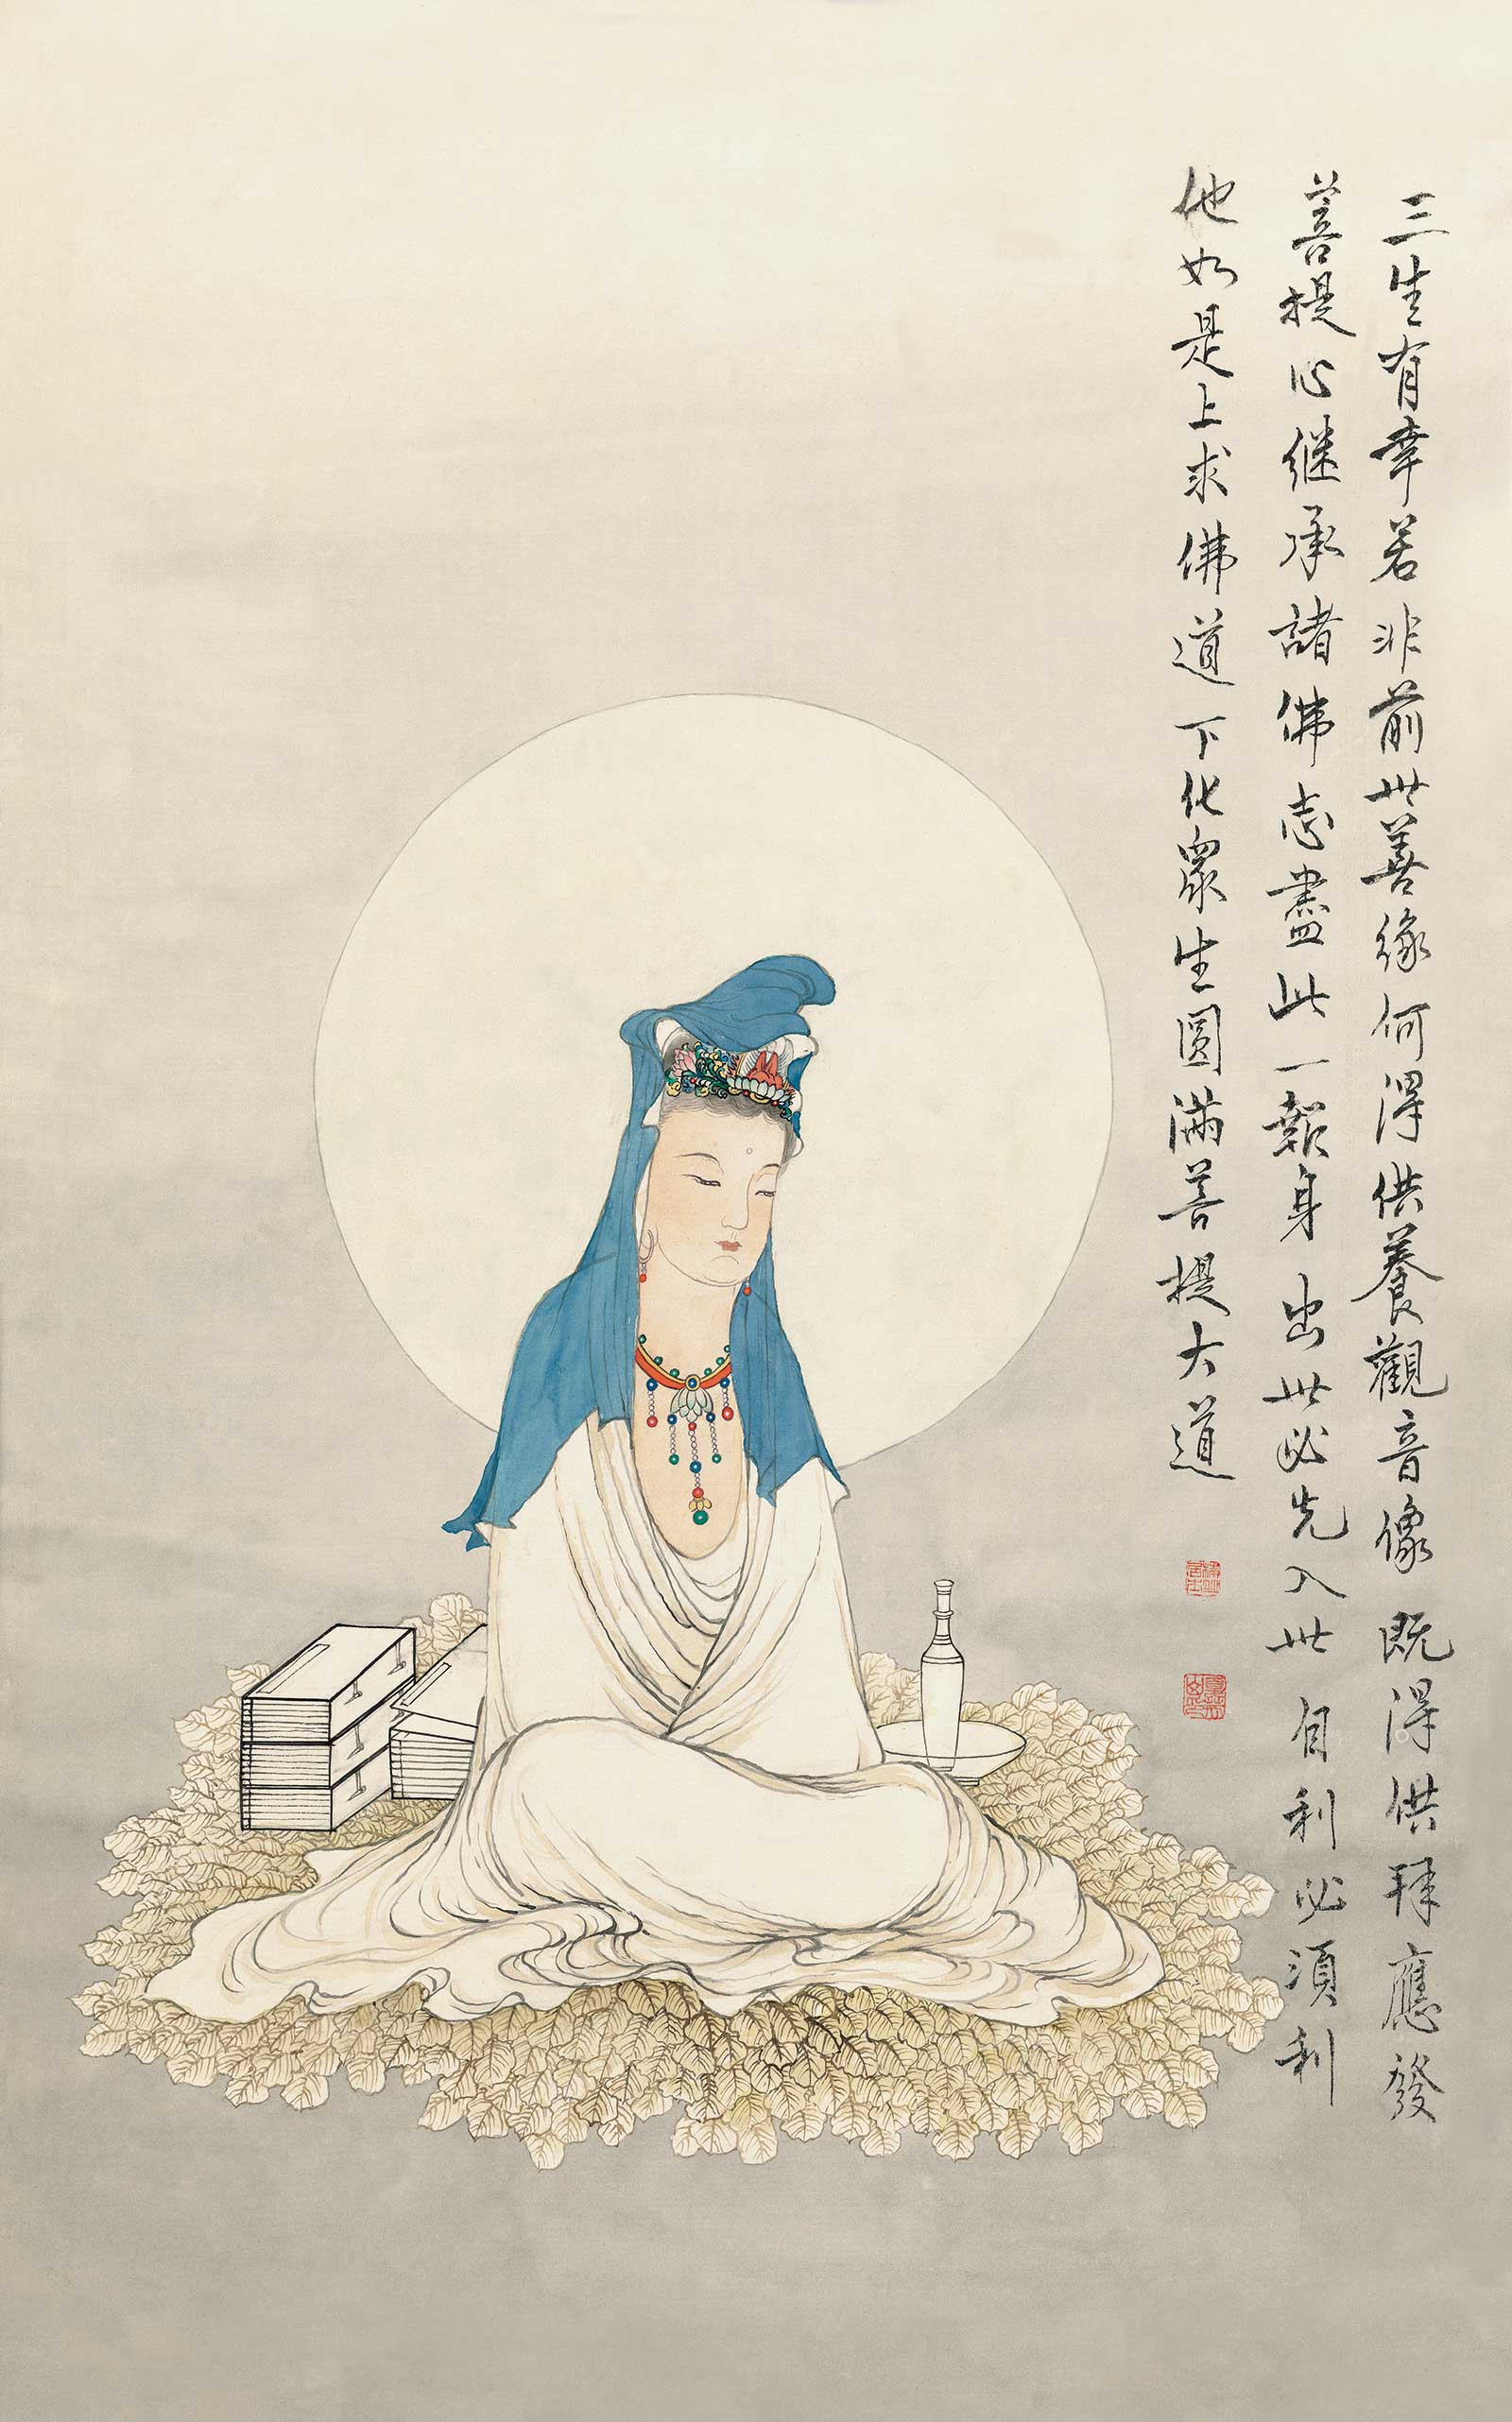 三生有幸若非前世善緣何得供養觀音像既得供拜應發
菩提心继承諸佛志盡此一報身出世必先入世自利必須利
他如是上求佛道下化眾生圆满菩提大道